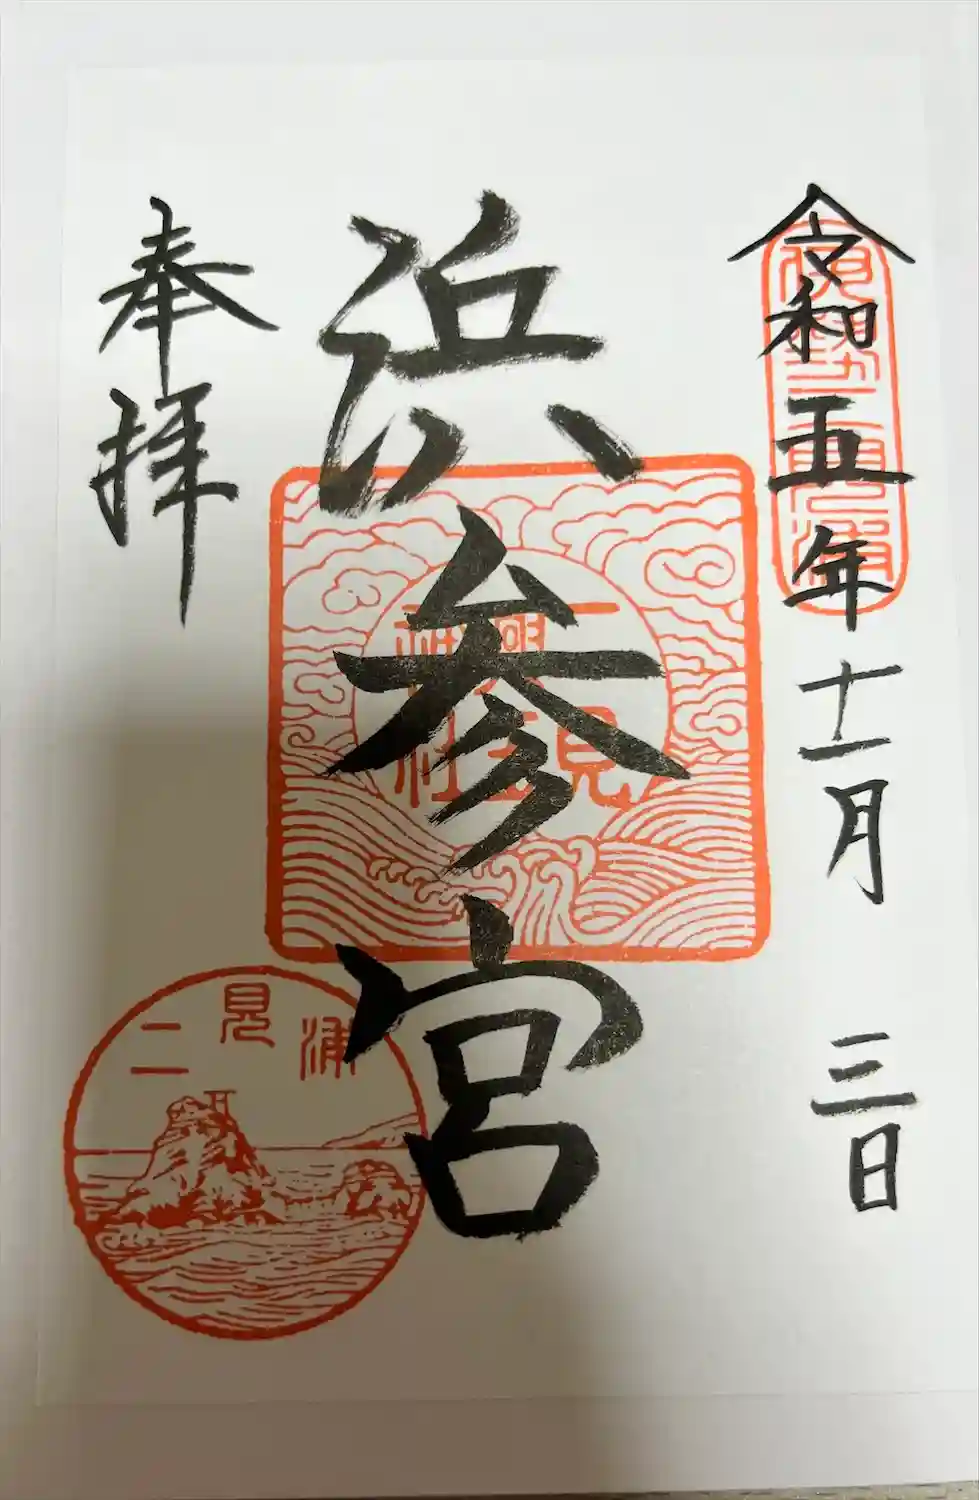 令和五年十一月三日
伊勢二見浦
浜参宮
二見興玉神社
奉拝
二見浦